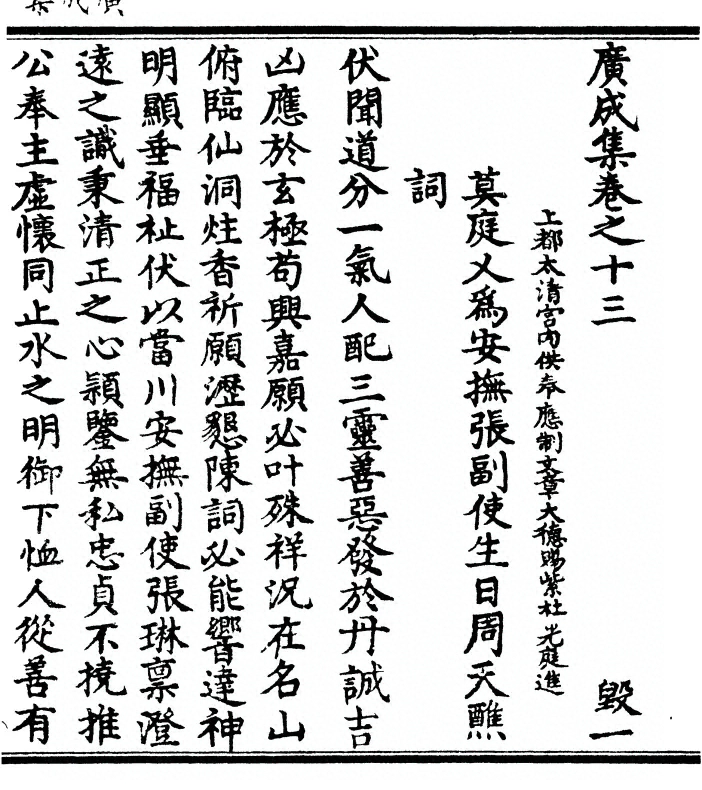 廣成集卷之十三 毀一
上都太清宮內供奉應制文章大德賜紫杜光庭進
莫庭乂爲安撫張副使生日周天醮
詞
伏聞道分一氣人配三靈善惡發於丹誠吉
凶應於玄極苟興嘉願必叶殊祥況在名山
俯臨仙洞炷香祈願瀝懇陳詞必能響達神
明顯垂福祉伏以當川安撫副使張琳禀澄
遠之識秉清正之心潁鑒無私忠貞不撓推
公奉主虛懷同止水之明御下恤人從善有